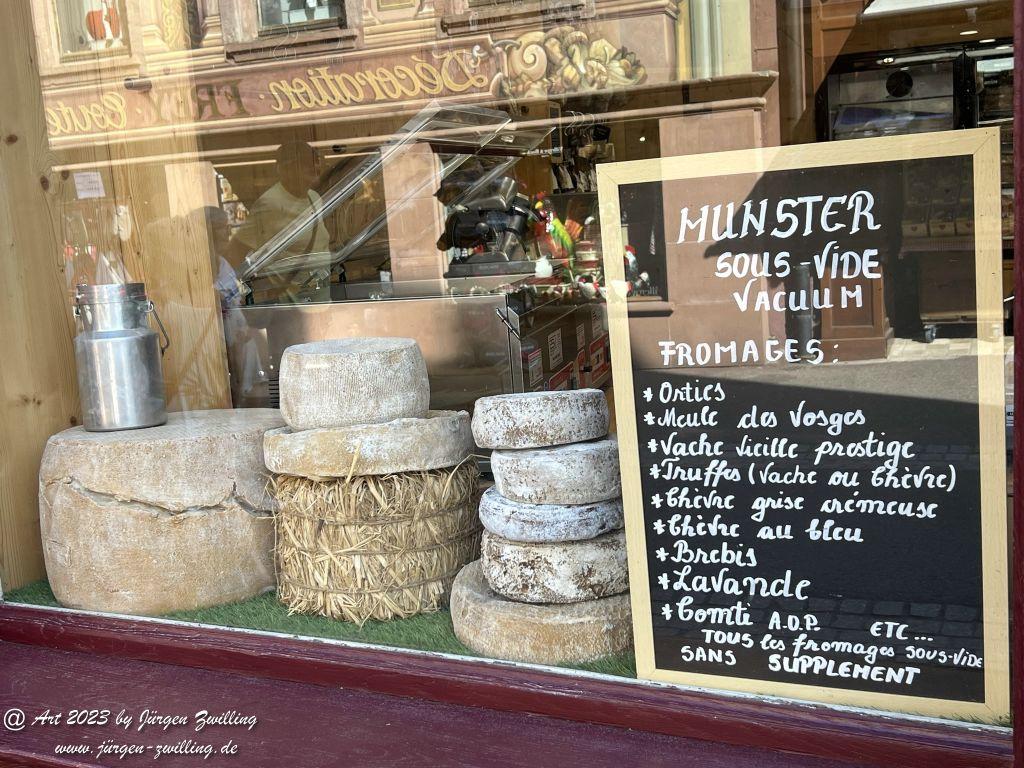 Décoration · FREY Coute
MUNSTER
SOUS-VIDE
VACUUM
FROMAGES:
* Orties
* Meule des Vosges
* Vache vieille prestige
* Truffes (Vache ou Chèvre)
* Chèvre grise crémeuse
* Chèvre au bleu
* Brebis
* Lavande
* Comté A.O.P. ETC...
TOUS les fromages SOUS-VIDE
SANS SUPPLEMENT
@ Art 2023 by Jürgen Zwilling
www.jürgen-zwilling.de